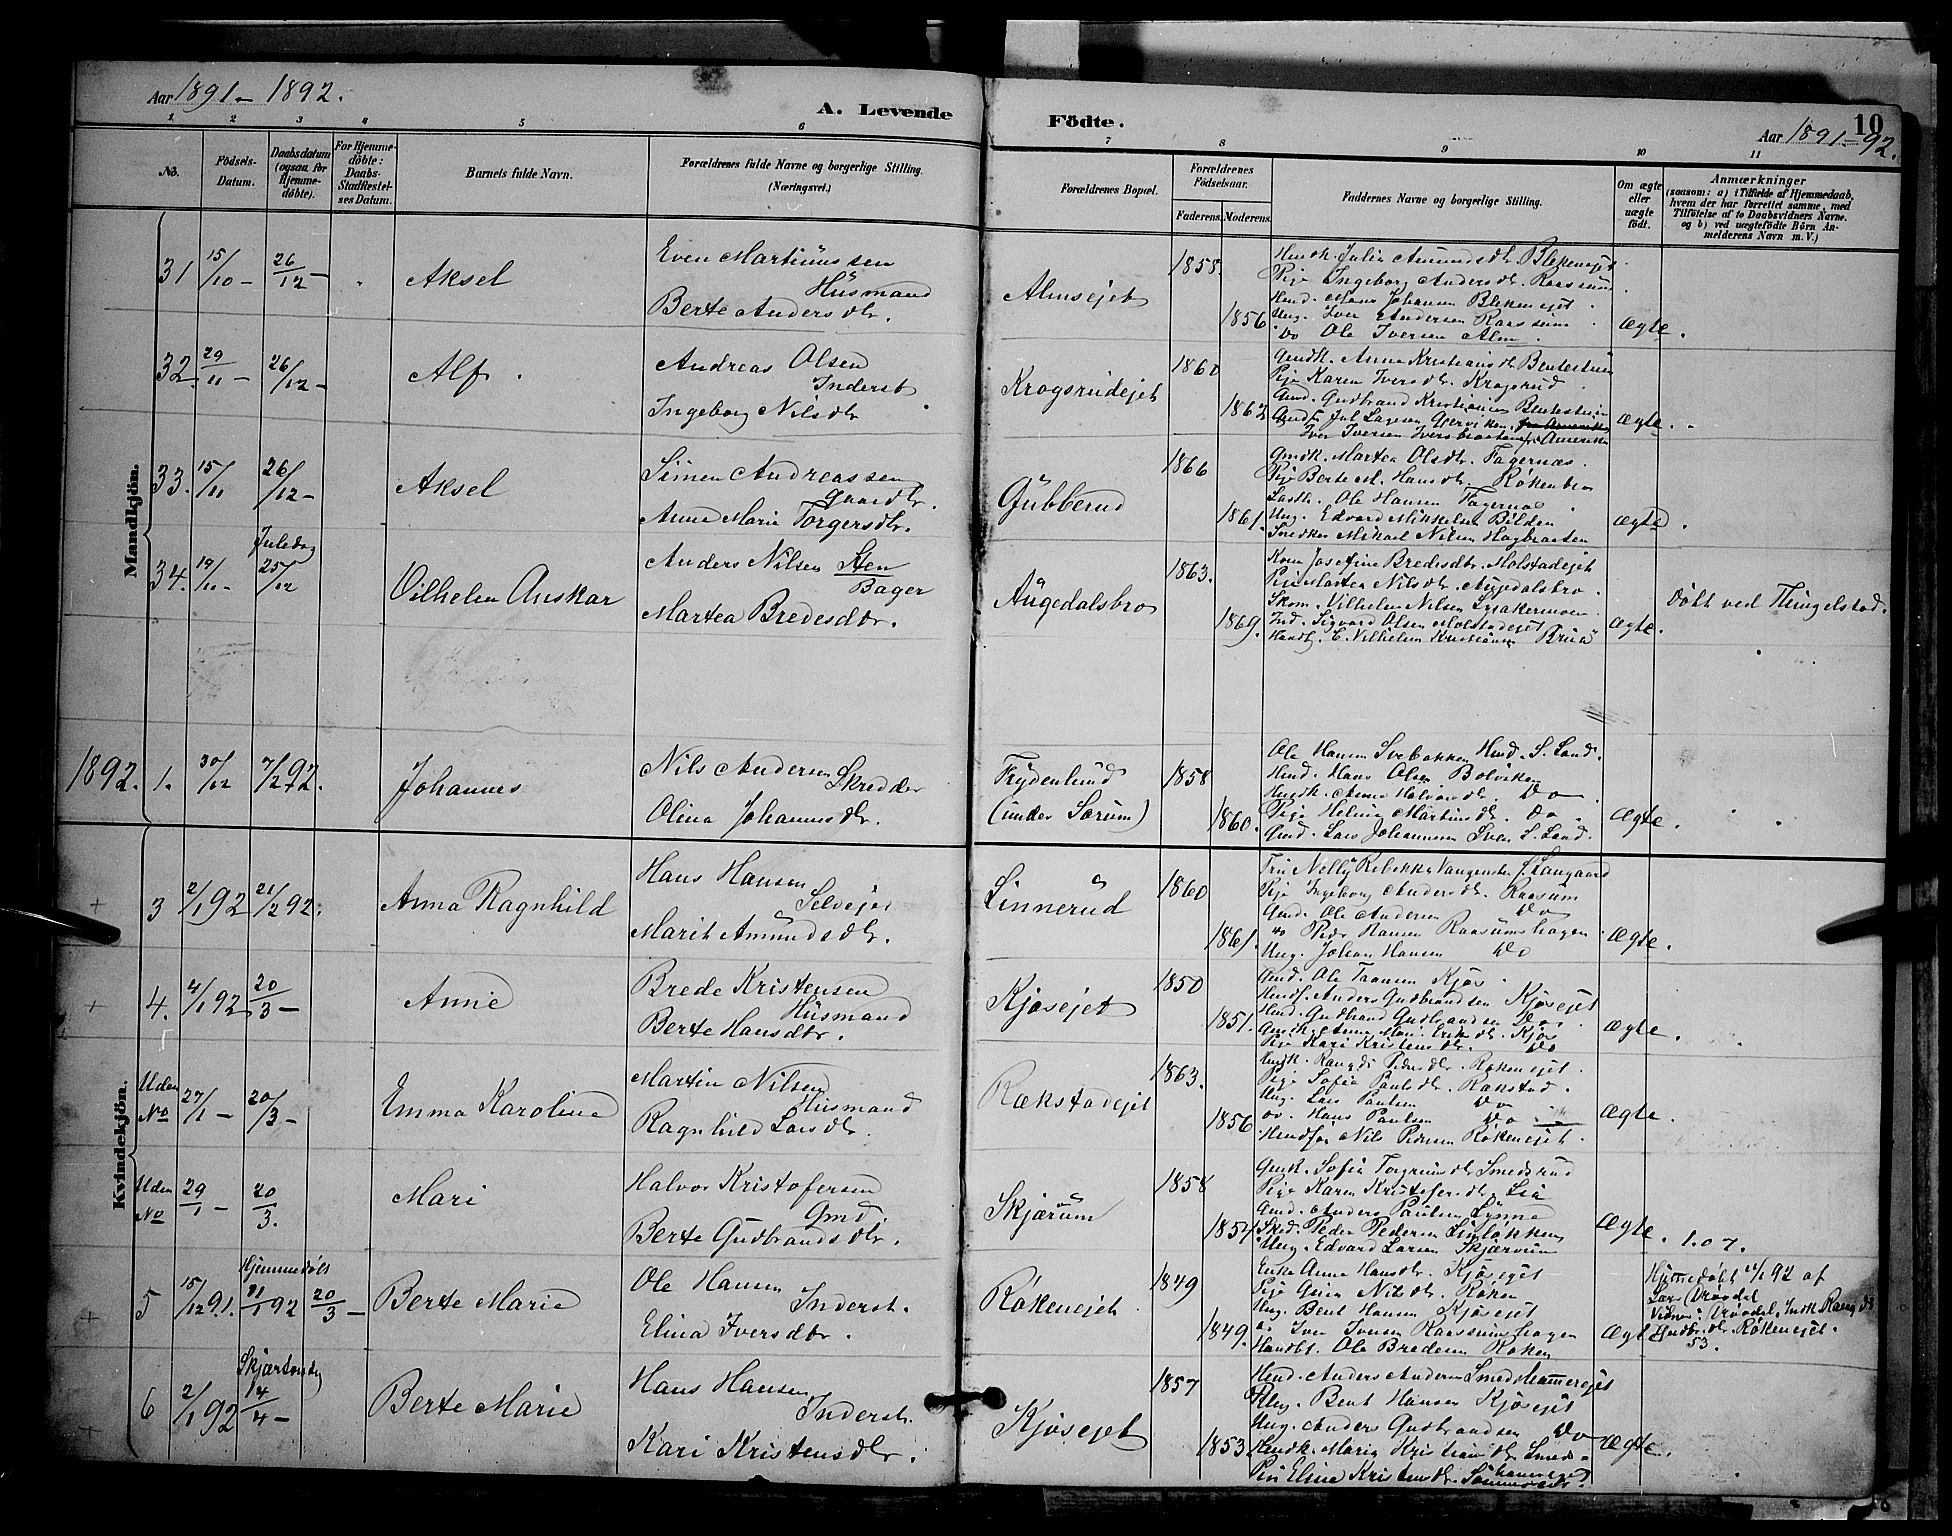 Aar 1891 - 1892.
A. Levende
Födte.
10
Aar 1891-92.
1 2 3 4 5 6 7 8 9 10 11
No.
Födsels-Datum.
Daabsdatum (ogsaa for Hjemme-döbte).
For Hjemme-döbte: Daabs-Stadfestel-ses Datum.
Barnets fulde Navn.
Forældrenes fulde Navne og borgerlige Stilling.
(Næringsvei.)
Forældrenes Bopæl.
Forældrenes Födselsaar.
Faderens. Moderens.
Faddernes Navne og borgerlige Stilling.
Om ægte eller uægte födt.
Anmærkninger
(saasom: a) i Tilfælde af Hjemmedaab, hvem der har forrettet samme, med Tilföielse af to Daabsvidners Navne. og b) ved uægtefödte Börn An-melderens Navn m. V.)
Mandkjön.
31 15/10 - 26/12 - Aksel
Even Martinussen
Husmand
Berte Andersdtr.
Almsejet
1858. 1856.
Husmk. Julia Amundsdtr. Blekenejet
Pige Ingeborg Andersdtr. Raassum
Husmd. Hans Johansen Blekenejet
Ung. Iver Andersen Raassum
Do Ole Iversen Alm.
Ægte.
32. 29/11 - 26/12 - Alf.
Andreas Olsen
Inderst
Ingeborg Nilsdtr.
Krogsrudejet
1860 1862
Gmdk. Anne Kristiansdtr.
Pige Karen Iversdtr. Krogsrud
Gmd. Gudbrand Kristiansen
Iver Iversen
Ægte.
33. 15/11 26/12 - Aksel
Simen Andreassen
Gaardbr.
Anne Marie Torgersdtr.
Gubberud
1866 1861.
Gmdk. Martea Olsdtr. Fagernæs.
Pige Berte M. Hansdtr. Røkenbro
Ole Hansen Fagernæs
Ung. Edvard Mikkelsen Bilden
Snedker Mikael Nilsen Hagbraaten
Ægte.
34. 19/11 - Juledag 25/12 Vilhelm Anskar
Anders Nilsen Sten
Bager
Martea Bredesdtr.
Augedalsbro
1863. 1869.
Kone Josefine Bredesdtr. Molstadejet
Pige Martea Nilsdtr. Augedalsbro.
Skom. Vilhelm Nilsen Lysakermoen
Ind. Sigvard Olsen Molstadejet
Handlb. C. Vilhelm Kristiansen Brua
Ægte.
Döbt ved Tingelstad.
1892. 1. 30/12 7/2 92. Johannes
Nils Andersen Skredder
Olina Johannesdtr.
Frydenlund
(under Sørum)
1858 1860.
Ole Hansen Svebakken Husmd. S. Land.
Husmd. Hans Olsen Bolviken
Husmdk. Anne Halvorsdtr. Do
Pige Helene Martinsdtr. Do
Gmd. Lars Johannesen S. Land.
Ægte.
Kvindekjön.
3 2/1 92 21/2 92. Anna Ragnhild
Hans Hansen
Selvejer
Marit Amundsdtr.
Linnerud
1860 1861.
Fru Nelly Rebekka Vangensten
Pige Ingeborg Andersdtr. Raasum
Gmd. Ole Andersen Do
Do Peder Hansen Raasumshagen
Ung. Johan Hansen Do
Ægte.
4. 4/1 92 20/3 - Anne
Brede Kristensen
Husmand
Berte Hansdtr.
Kjøsejet
1850 1851.
Gmd. Ole Kjøs.
Anders Gudbrandsen Kjøsejet
Husmd. Gudbrand Gudbrandsen Do
Gmdk. Anne Marie Eriksdtr. Kjøs
Pige Kari Kristensdtr. Do
Ægte.
Uden No 27/1 - 20/3 - Emma Karoline
Martin Nilsen
Husmand
Ragnhild Larsdtr.
Rækstadejet
1863. 1856.
Husmk. Rangdi Pedersdtr. Røkenejet
Pige Sofie Paulsdtr. Rækstad.
Ung. Lars Paulsen Do
Do. Hans Paulsen Do
Nils Pedersen Røkenejet.
Ægte.
Uden No 29/1 - 20/3. Mari
Halvor Kristofersen
Gmd.
Berte Gudbrandsdtr.
Skjærum
1858 1854
Gmdk. Sofie Torgrimsdtr. Smedsrud
Pige Karen Kristofersdtr. Lia
Gmd. Anders Paulsen Lynne
Peder Pedersen Linløkken
Ung. Edvard Larsen Skjærum
Ægte. 107.
5 15/12 91. Hjemmedöbt 11/1 92 20/3 - Berte Marie
Ole Hansen
Inderst.
Elina Iversdtr.
Røkenejet
1849 1849.
Enke Anne Hansdtr. Kjøsejet
Pige Nilsdtr. Røken
Ung. Bent Hansen Kjøsejet
Do Iver Iversen Raassumshagen
Ole Bredesen Røken
Ægte
Hjemmedöbt 11/1 92 af
53.
6 2/1 92 Skjærtorsdag 14/4 - Berte Marie
Hans Hansen
Inderst.
Kari Kristensdtr.
Kjøsejet
1857 1853
Husmd. Anders Andersen Smedhammerejet
Ung. Bent Hansen Kjøsejet
Ung. Anders Gudbrandsen Do
Husmdk. Marie Kristiansdtr. Smed-
hammerejet
Pige Eline Kristensdtr.
Ægte.